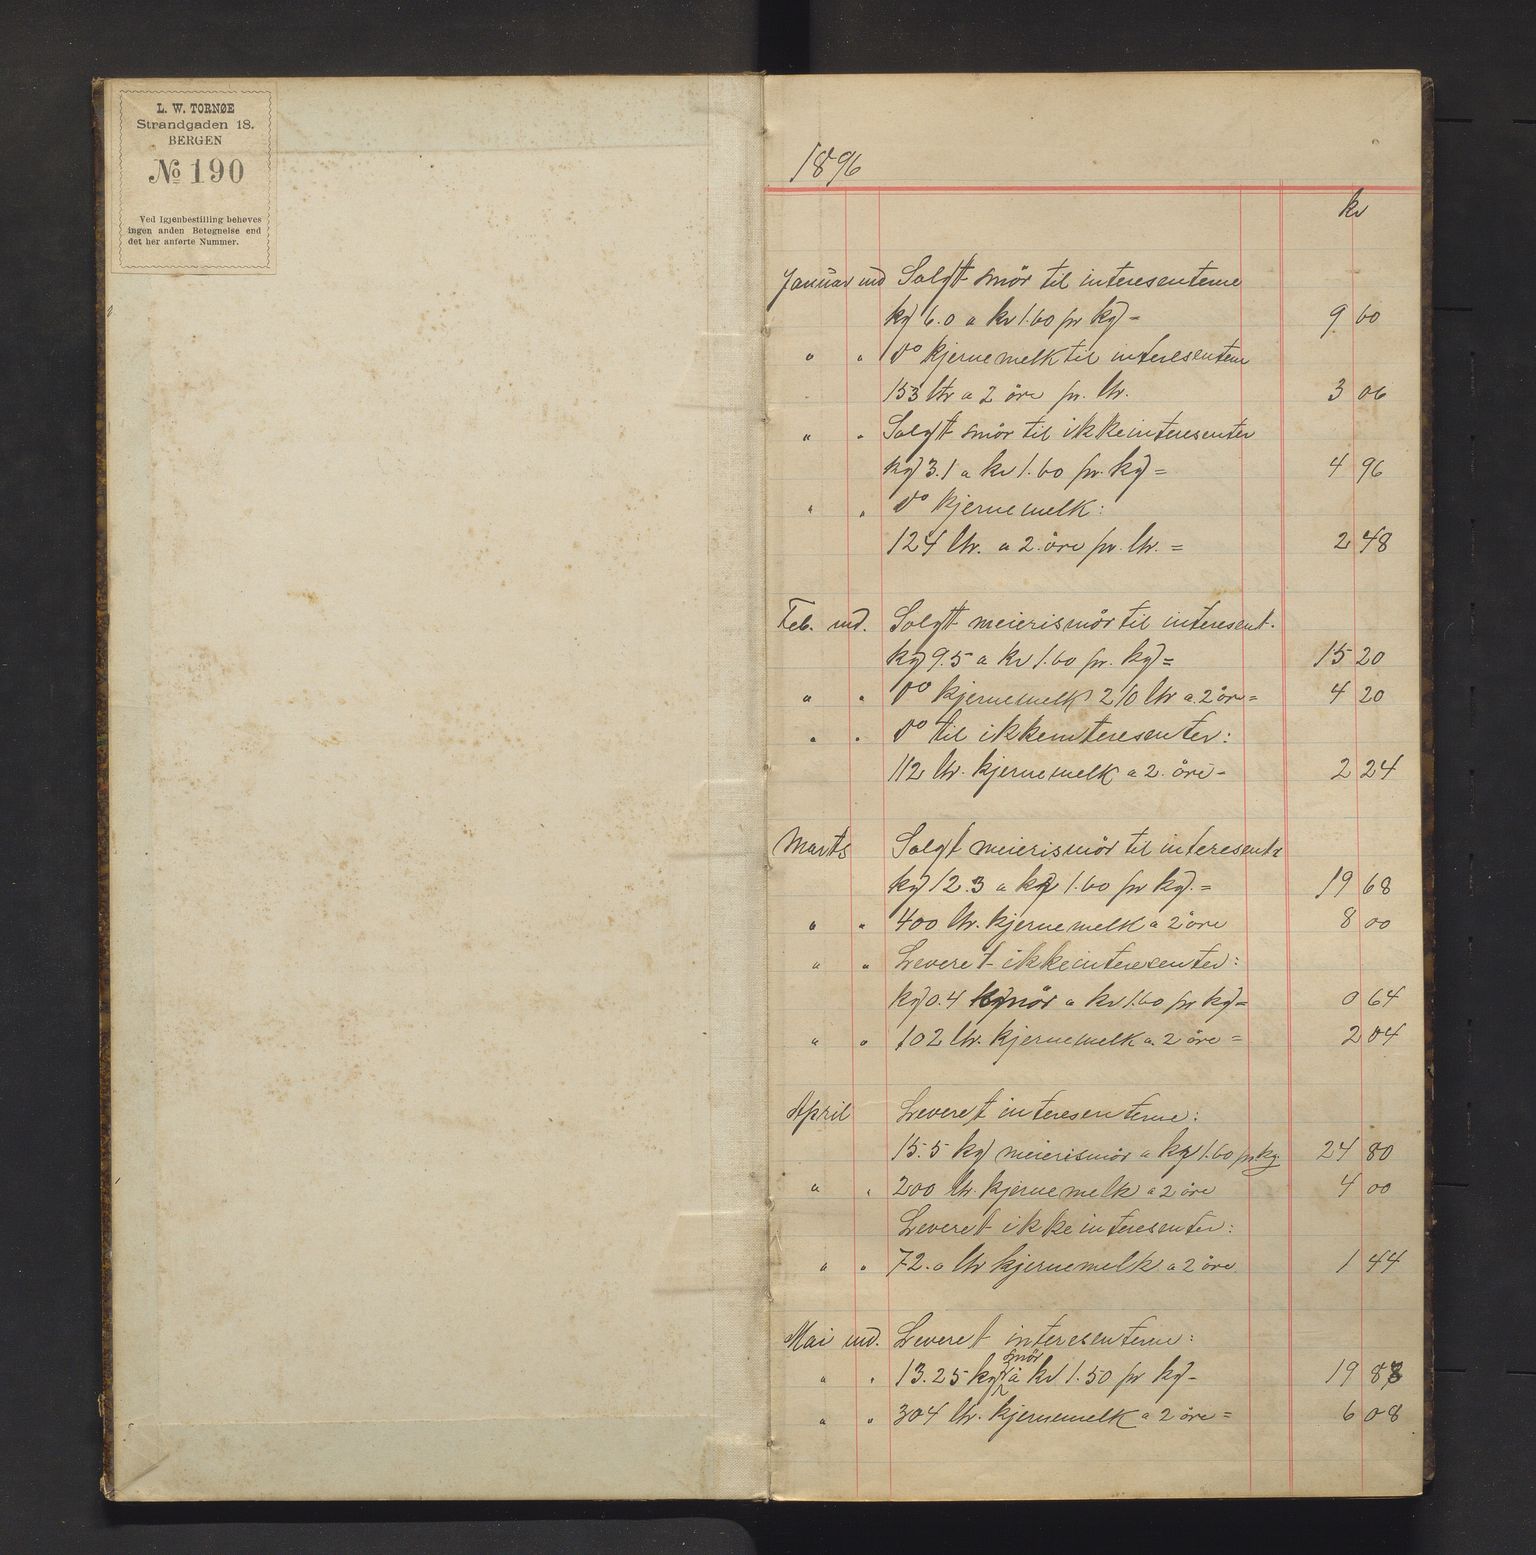 L. W. TORNØE
Strandgaden 18.
BERGEN
No 190
Ved Igjenbestilling behøves
ingen anden Betegnelse end
det her anførte Nummer.
1896
kr
Januar md Solgt smör til interesenterne
kg 6.0 a kr 1.60 pr kg - 9 60
" " do kjernemelk til interesentern
153 ltr a 2 öre pr. ltr. 3 06
" " Solgt smör til ikkeinteresenter
kg 3.1 a kr 1.60 pr. kg = 4 96
" " do kjernemelk:
124 ltr. a 2 öre pr. ltr. = 2 48
Feb. md. Solgt meierismör til interesent.
kg 9.5 a kr 1.60 pr. kg = 15 20
" " do kjernemelk 210 ltr a 2 öre = 4 20
" " do til ikkeinteresenter:
112 ltr. kjernemelk a 2 öre - 2 24
Marts Solgt meierismör til interesent
kg 12.3 a kr 1.60 pr kg. = 19 68
" " 400 ltr. kjernemelk a 2 öre 8 00
" " Leveret ikkeinteresenter:
kg 0.4 smör a kr 1.60 pr kg = 0 64
" " 102 ltr. kjernemelk a 2 öre = 2 04
April Leveret interesenterne:
15.5 kg meierismör a kr 1.60 pr kg. 24 80
" " 200 ltr. kjernemelk a 2 öre 4 00
Leveret ikkeinteresenter:
" " 72.0 ltr kjernemelk a 2 öre 1 44
Mai md. Leveret interesenterne:
" " 13.25 kg smör à kr 1.50 pr kg - 19 88
" " 304 ltr. kjernemelk a 2 öre = 6 08